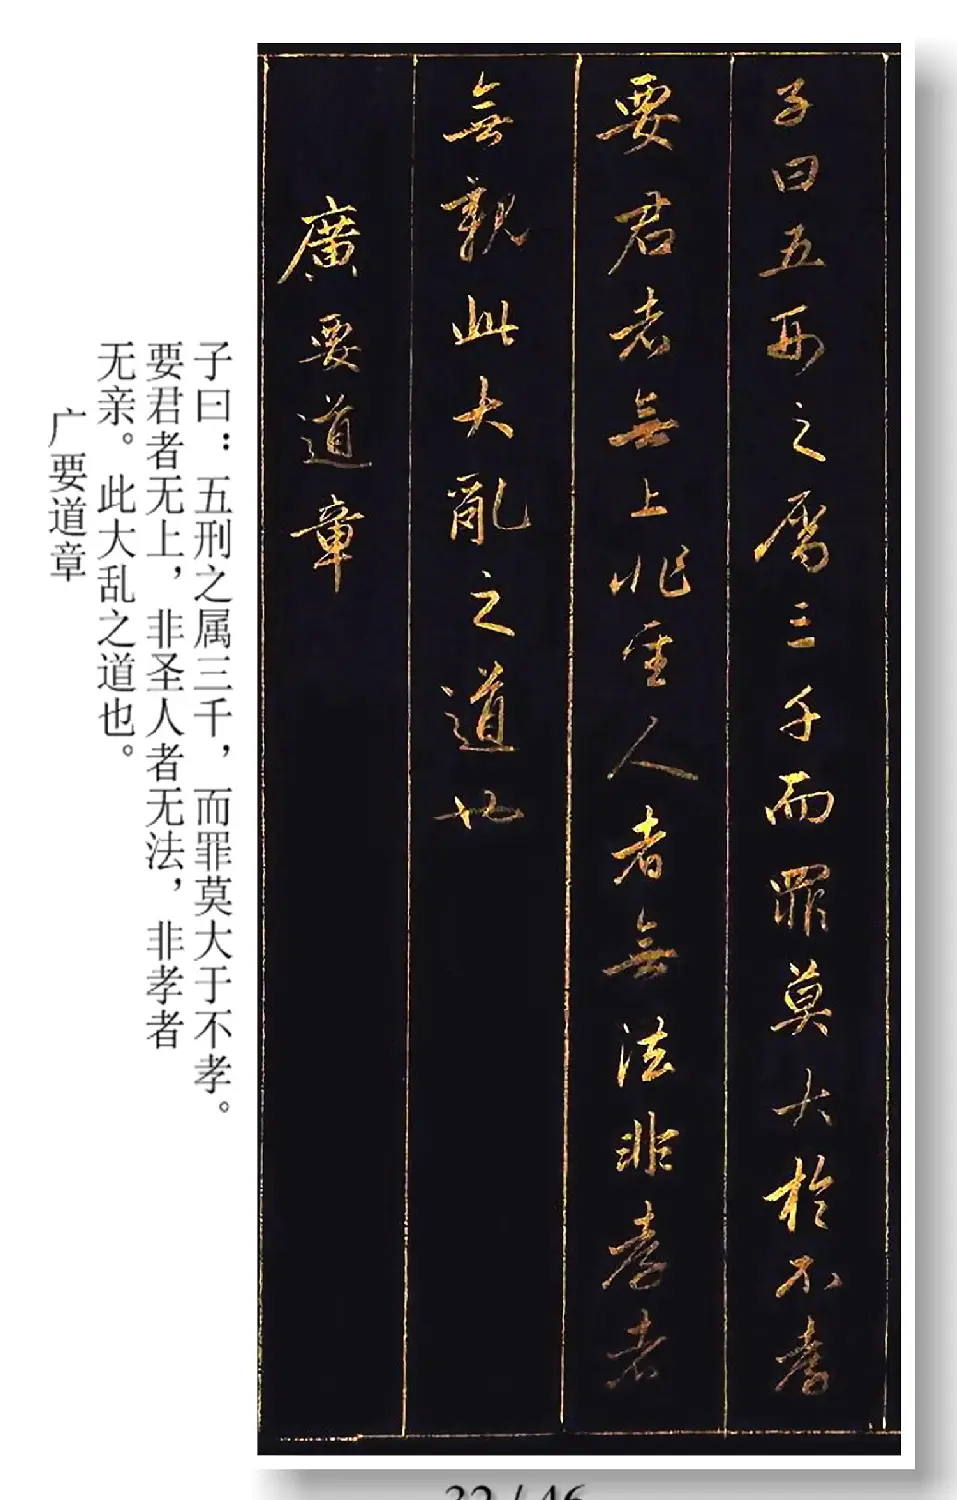 子曰五刑之属三千而罪莫大於不孝
要君者無上非聖人者無法非孝者
無親此大亂之道也
廣要道章
子曰：五刑之属三千，而罪莫大于不孝。
要君者无上，非圣人者无法，非孝者
无亲。此大乱之道也。
广要道章
32 / 46